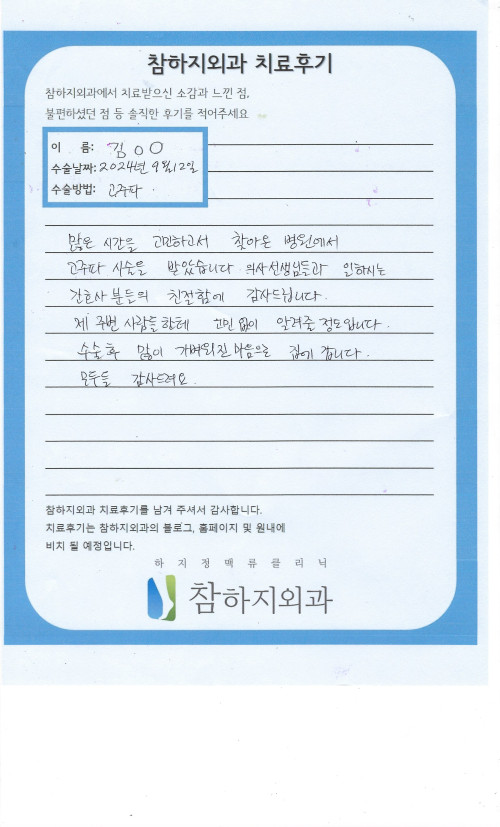 참하지외과 치료후기
참하지외과에서 치료받으신 소감과 느낀 점,
불편하셨던 점 등 솔직한 후기를 적어주세요
이 름: 김 O O
수술날짜: 2024년 9월 12일
수술방법: 고주파
많은 시간을 고민하고서 찾아온 병원에서
고주파 시술을 받았습니다 의사선생님들과 일하시는
간호사 분들의 친절함에 감사드립니다.
제 주변 사람들한테 고민 없이 알려줄 정도입니다.
수술후 많이 가벼워진 마음으로 집에 갑니다.
모두들 감사드려요.
참하지외과 치료후기를 남겨 주셔서 감사합니다.
치료후기는 참하지외과의 블로그, 홈페이지 및 원내에
비치 될 예정입니다.
하지정맥류클리닉
참하지외과